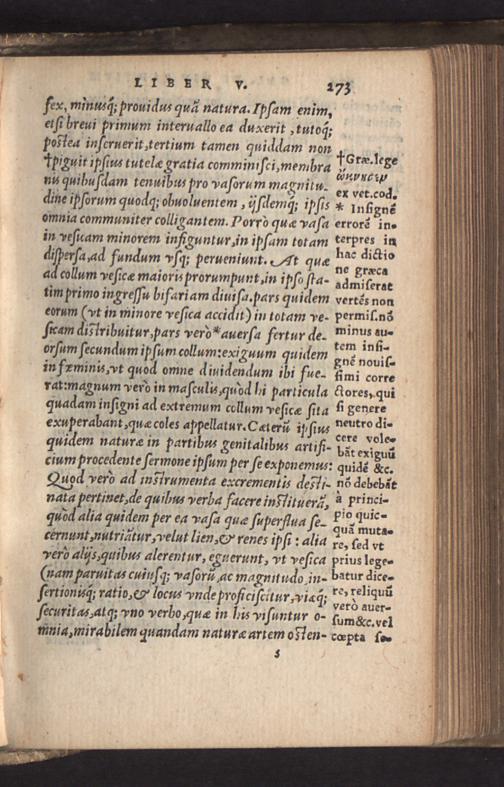 LIBER V. 273
fex, minusq́; prouidus quã natura. Ipsam enim,
etsi breui primum interuallo ea duxerit, tutoq́;
postea inseruerit, tertium tamen quiddam non
†piguit ipsius tutelæ gratia comminisci, membra
nis quibusdam tenuibus pro vasorum magnitu-
dine ipsorum quodq; obuoluentem, ijsdemq́; ipsis
omnia communiter colligantem. Porrò quæ vasa
in vesicam minorem infiguntur, in ipsam totam
dispersa, ad fundum vsq; perueniunt. At quæ
ad collum vesicæ maioris prorumpunt, in ipso sta-
tim primo ingressu bifariam diuisa, pars quidem
eorum (vt in minore vesica accidit) in totam ve-
sicam distribuitur, pars verò* auersa fertur de-
orsum secundum ipsum collum: exiguum quidem
in fœminis, vt quod omne diuidendum ibi fue-
rat: magnum verò in masculis, quòd hi particula
quadam insigni ad extremum collum vesicæ sita
exuperabant, quæ coles appellatur. Cæterũ ipsius
quidem naturæ in partibus genitalibus artifi-
cium procedente sermone ipsum per se exponemus:
Quod verò ad instrumenta excrementis desti-
nata pertinet, de quibus verba facere institueram,
quòd alia quidem per ea vasa quæ superflua se-
cernunt, nutriãtur, velut lien, & renes ipsi: alia
verò alijs, quibus alerentur, eguerunt, vt vesica
(nam paruitas cuiusq; vasorũ, ac magnitudo, in-
sertionisq́; ratio, & locus vnde proficiscitur, viæq́;
securitas, atq; vno verbo, quæ in his visuntur o-
mnia, mirabilem quandam naturæ artem osten-
s
†Græ. lege
ex vet. cod.
* Insignẽ
errorẽ in-
terpres in
hac dictio
ne græca
admiserat
vertẽs non
permis. nõ
minus au-
tem insi-
gnẽ nouis-
simi corre
ctores, qui
si genere
neutro di-
cere vole-
bãt exiguũ
quidẽ &c.
nõ debebãt
à princi-
pio quic-
quã muta-
re, sed vt
prius lege-
batur dice-
re, reliquũ
verò auer-
sum &c. vel
cœpta se-